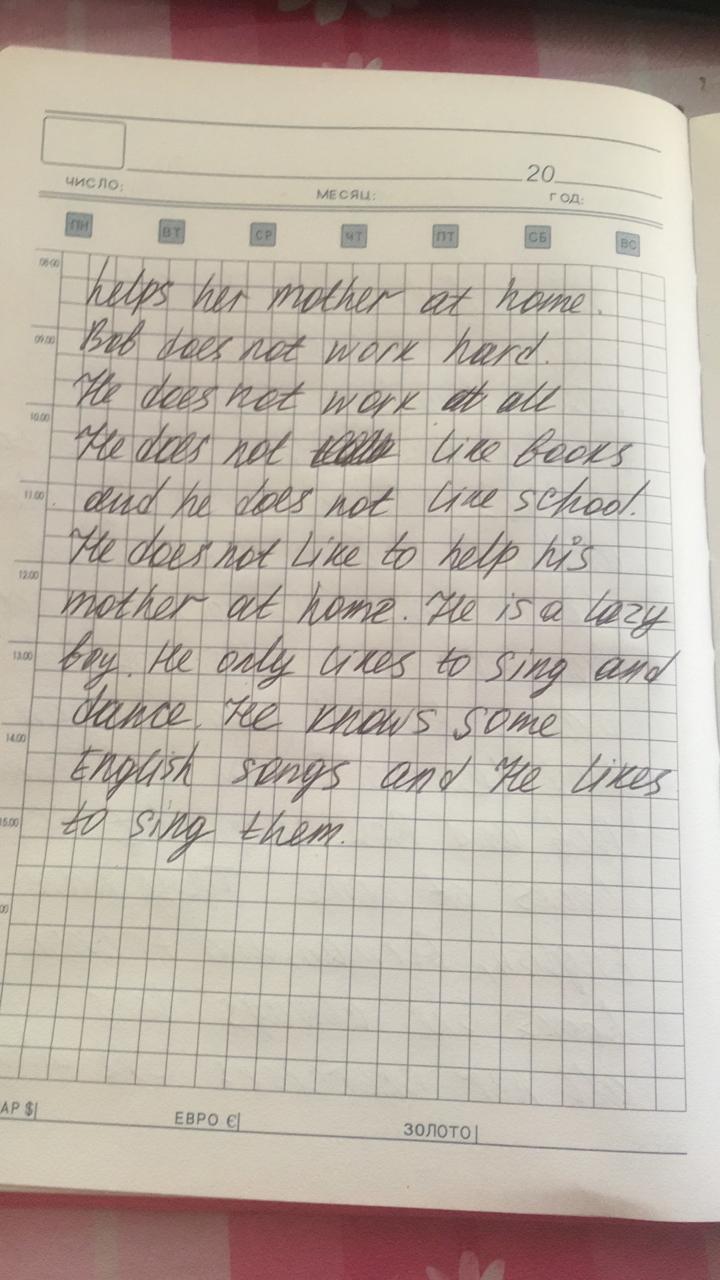 20
ЧИСЛО: МЕСЯЦ: ГОД:
ПН ВТ СР ЧТ ПТ СБ ВС
08:00
helps her mother at home.
09.00
Bob does not work hard.
He does not work at all
10.00
He does not like books
11.00
and he does not like school.
He does not like to help his
12.00
mother at home. He is a lazy
13.00
boy. He only likes to sing and
dance. He knows some
14.00
English songs and He likes
15.00
to sing them.
00
АР $|
ЕВРО €|
ЗОЛОТО|